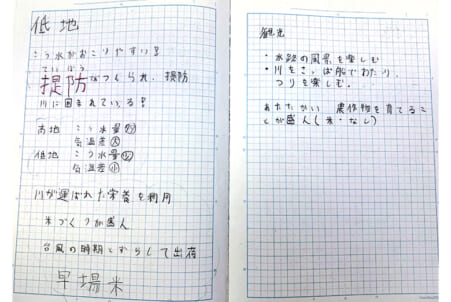 低地
こう水がおこりやすい!
ていぼう
堤防がつくられ、堤防
川に囲まれている!
高地 こう水量
気温差(大)
低地 こう水量
気温差(小)
川が運ばれた栄養を利用
米づくりが盛ん
台風の時期とずらして出荷
早場米
観光
・水路の風景を楽しむ
・川をこっぱ船でわたり、
つりを楽しむ。
あたたかい 農作物を育てるこ
とが盛ん(米・なし)